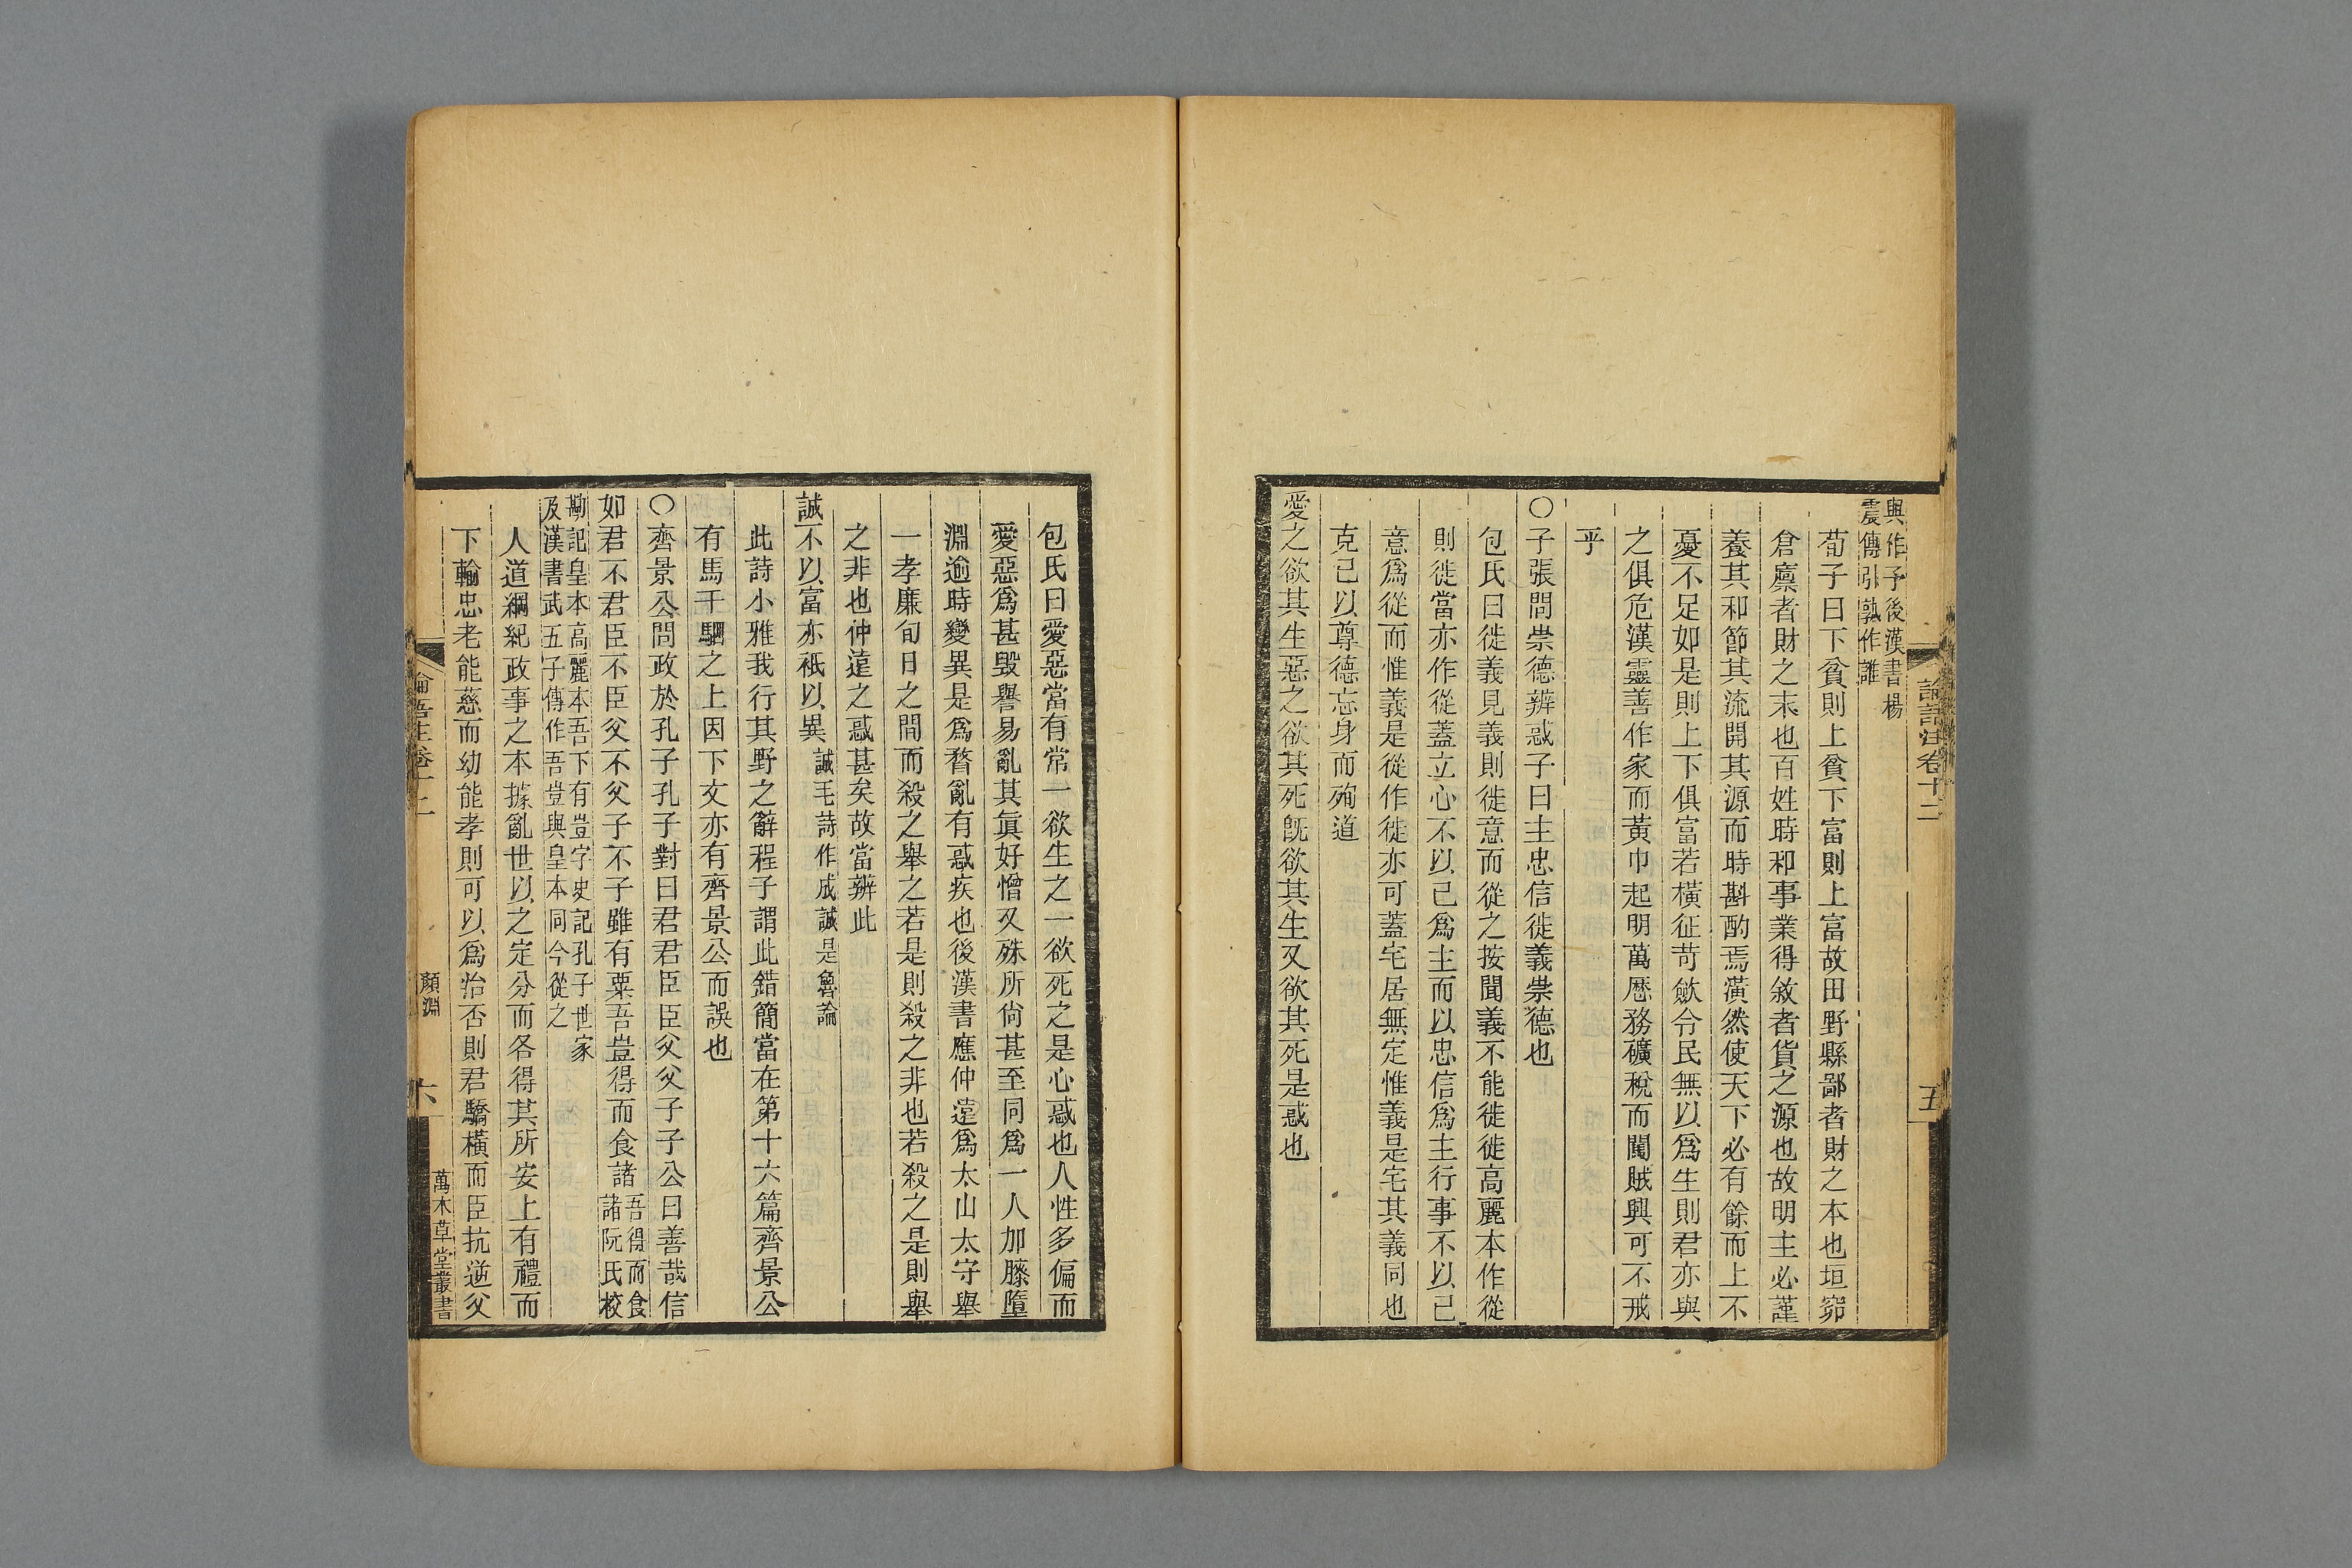 論語注卷十二
五
與作子後漢書楊
震傳引孰作誰
荀子曰下貧則上貧下富則上富故田野縣鄙者財之本也垣窌
倉廩者財之末也百姓時和事業得敘者貨之源也故明主必謹
養其和節其流開其源而時斟酌焉潢然使天下必有餘而上不
憂不足如是則上下俱富若橫征苛歛令民無以爲生則君亦與
之俱危漢靈善作家而黃巾起明萬厯務礦稅而闖賊興可不戒
乎
〇子張問崇德辨惑子曰主忠信徙義崇德也
包氏曰徙義見義則徙意而從之按聞義不能徙徙高麗本作從
則徙當亦作從蓋立心不以己爲主而以忠信爲主行事不以己
意爲從而惟義是從作徙亦可蓋宅居無定惟義是宅其義同也
克己以尊德忘身而殉道
愛之欲其生惡之欲其死既欲其生又欲其死是惑也
包氏曰愛惡當有常一欲生之一欲死之是心惑也人性多偏而
愛惡爲甚毀譽易亂其眞好憎又殊所尙甚至同爲一人加膝墮
淵逾時變異是爲瞀亂有惑疾也後漢書應仲遠爲太山太守舉
一孝廉旬日之間而殺之舉之若是則殺之非也若殺之是則舉
之非也仲遠之惑甚矣故當辨此
誠不以富亦祇以異
誠毛詩作成誠是魯論
此詩小雅我行其野之辭程子謂此錯簡當在第十六篇齊景公
有馬千駟之上因下文亦有齊景公而誤也
〇齊景公問政於孔子孔子對曰君君臣臣父父子子公曰善哉信
如君不君臣不臣父不父子不子雖有粟吾豈得而食諸
吾得而食
諸阮氏校
勘記皇本高麗本吾下有豈字史記孔子世家
及漢書武五子傳作吾豈與皇本同今從之
人道綱紀政事之本據亂世以之定分而各得其所安上有禮而
下輸忠老能慈而幼能孝則可以爲治否則君驕橫而臣抗逆父
論語注卷十二
顏淵
六
萬木草堂叢書